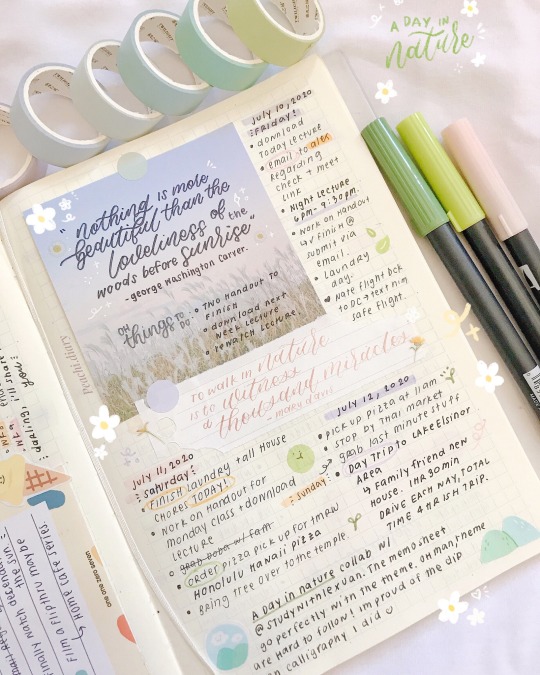 A DAY IN
nature
"nothing is more
beautiful than the
loveliness of the
woods before sunrise"
- george Washington Carver.
things TO DO:
• TWO handout to
FINISH
• download next
week lecture
• rewatch lecture.
Peachti.diary
TO walk in nature
is to witness
a thousand miracles
- mary davis
july 10, 2020
FRIDAY:
• download
today lecture
• email to alex
Regarding
check + meet
link
• Night Lecture
6pm - 9:30pm.
• work on Handout
4v finish @
submit via
email.
• Laundry
day.
♥ Nate flight bck
to DC → text him
safe flight.
july 11, 2020
saturday:
• FINISH LAUNDRY + all House
CHORES TODAY!
• work on Handout for
monday class + download
lecture
• order pizza pick up for tmrw
Honolulu Hawaii pizza
• Bring tree over to the temple.
july 12, 2020
: sunday :
• PICK UP PIZZA at 11am
• STOP BY Thai market
grab last minute stuff
• Day Trip to Lake Elsinor
Area
↳ Family friend new
House. 1HR 30min
Drive each way, total
time 4 HRISH TRIP.
A Day in nature collab w/
@studywithlexuan. The memo sheet
go perfectly with the theme. oh man theme
are Hard to follow! im proud of the dip
on calligraphy i did ☺
one one zero seven
Home cafe series
Film a flipthru maybe